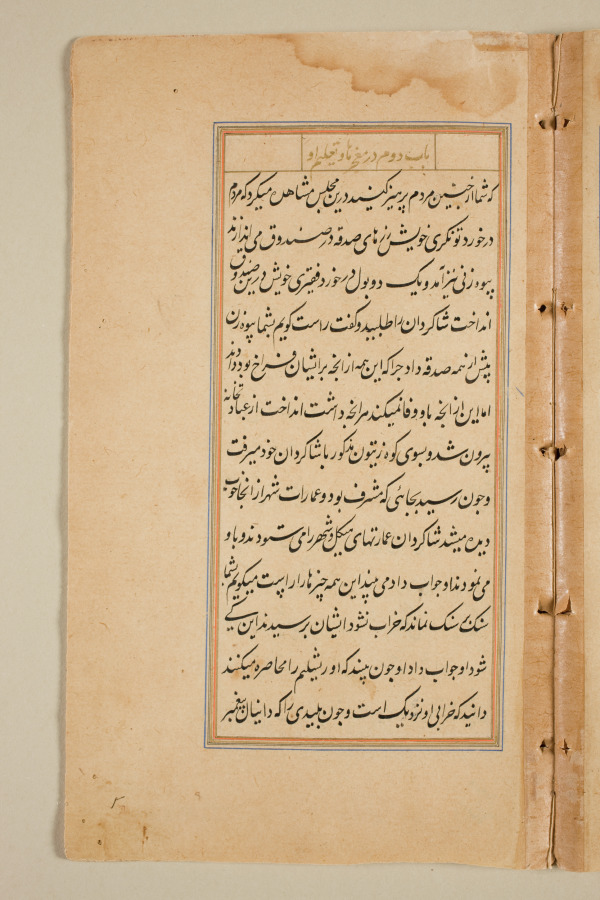 باب دوم در معجزها و تعلیم او
که شما از چنین مردم پرهیز کنید درین مجلس مشاهده میکرد که مردم
درخورد تونکری خویش زرهای صدقه در صندوق می اندازند
بیوه زنی نیز آمد و یک دو پول درخورد فقیری خویش درین صندوق
انداخت شاکردان را طلبید و کفت راست کویم بشما بیوه زن
بیش از همه صدقه داد چرا که این همه از انچه برایشان فراخ بود دادند
اما این از انچه باو وفا نمیکند هرانچه داشت انداخت از عبادتخانه
بیرون شد و بسوی کوه زیتون مذکور با شاکردان خود میرفت
و چون رسید بجائی که مشرف بود و عمارات شهر از انجا خوب
دیده میشد شاکردان عمارتهای هیکل و شهر را می ستودند و باو
می نمودند او جواب داد می بینید این همه چیزها را راست میکویم بشما
سنک بر سنک نماند که خراب نشود ایشان پرسیدند این کی
شود او جواب داد او چون بینید که اورشلیم را محاصره میکنند
دانید که خرابی او نزدیک است و چون پلیدی را که دانیال پیغمبر